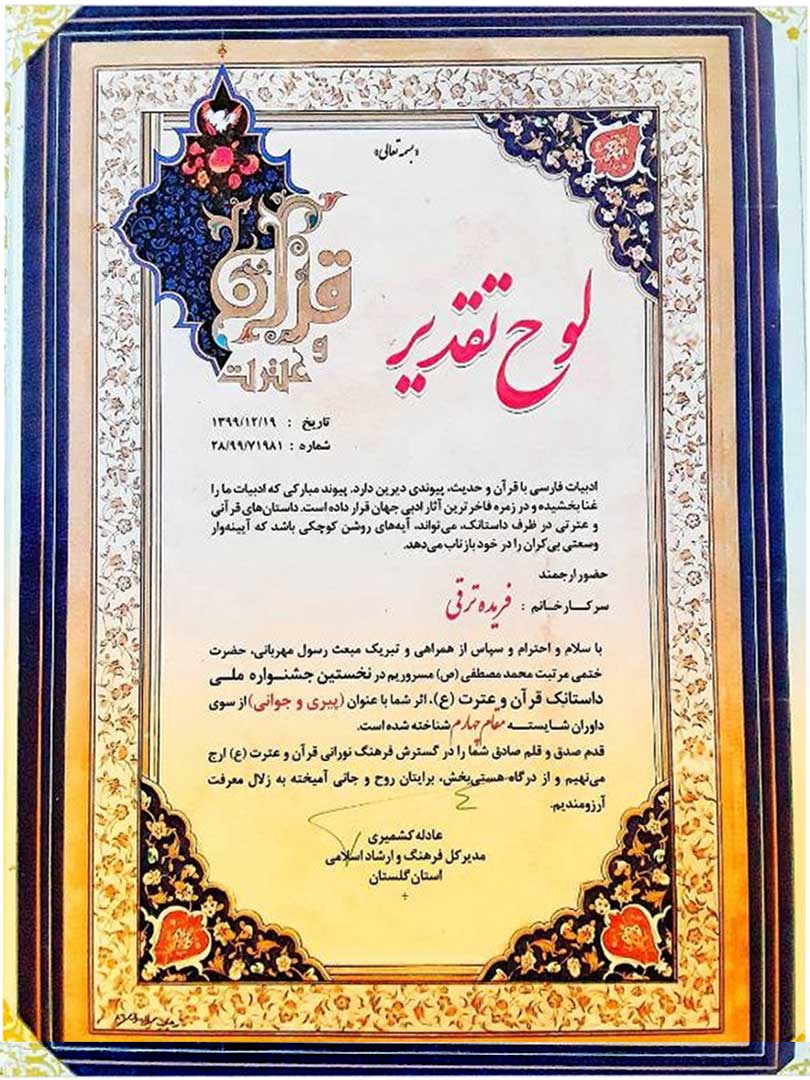 «بسمه تعالی»
قرآن
و
عترت
لوح تقدیر
تاریخ : ۱۳۹۹/۱۲/۱۹
شماره : ۲۸/۹۹/۷۱۹۸۱
ادبیات فارسی با قرآن و حدیث، پیوندی دیرین دارد. پیوند مبارکی که ادبیات ما را
غنا بخشیده و در زمره فاخرترین آثار ادبی جهان قرار داده است. داستان‌های قرآنی
و عترتی در ظرف داستانک، می‌تواند، آیه‌های روشن کوچکی باشد که آیینه‌وار
وسعتی بی‌کران را در خود بازتاب می‌دهد.
حضور ارجمند
سرکـار خـانم : فریده ترقی
با سلام و احترام و سپاس از همراهی و تبریک مبعث رسول مهربانی، حضرت
ختمی مرتبت محمد مصطفی (ص) مسروریم در نخستین جشنواره ملی
داستانک قرآن و عترت (ع)، اثر شما با عنوان (پیری و جوانی) از سوی
داوران شایستـــه مقام چهارم شناخته شده است.
قدم صدق و قلم صادق شما را در گسترش فرهنگ نورانی قرآن و عترت (ع) ارج
می‌نهیم و از درگاه هستی‌بخش، برایتان روح و جانی آمیخته به زلال معرفت
آرزومندیم.
عادله کشمیری
مدیر کل فرهنگ و ارشاد اسلامی
استان گلستان